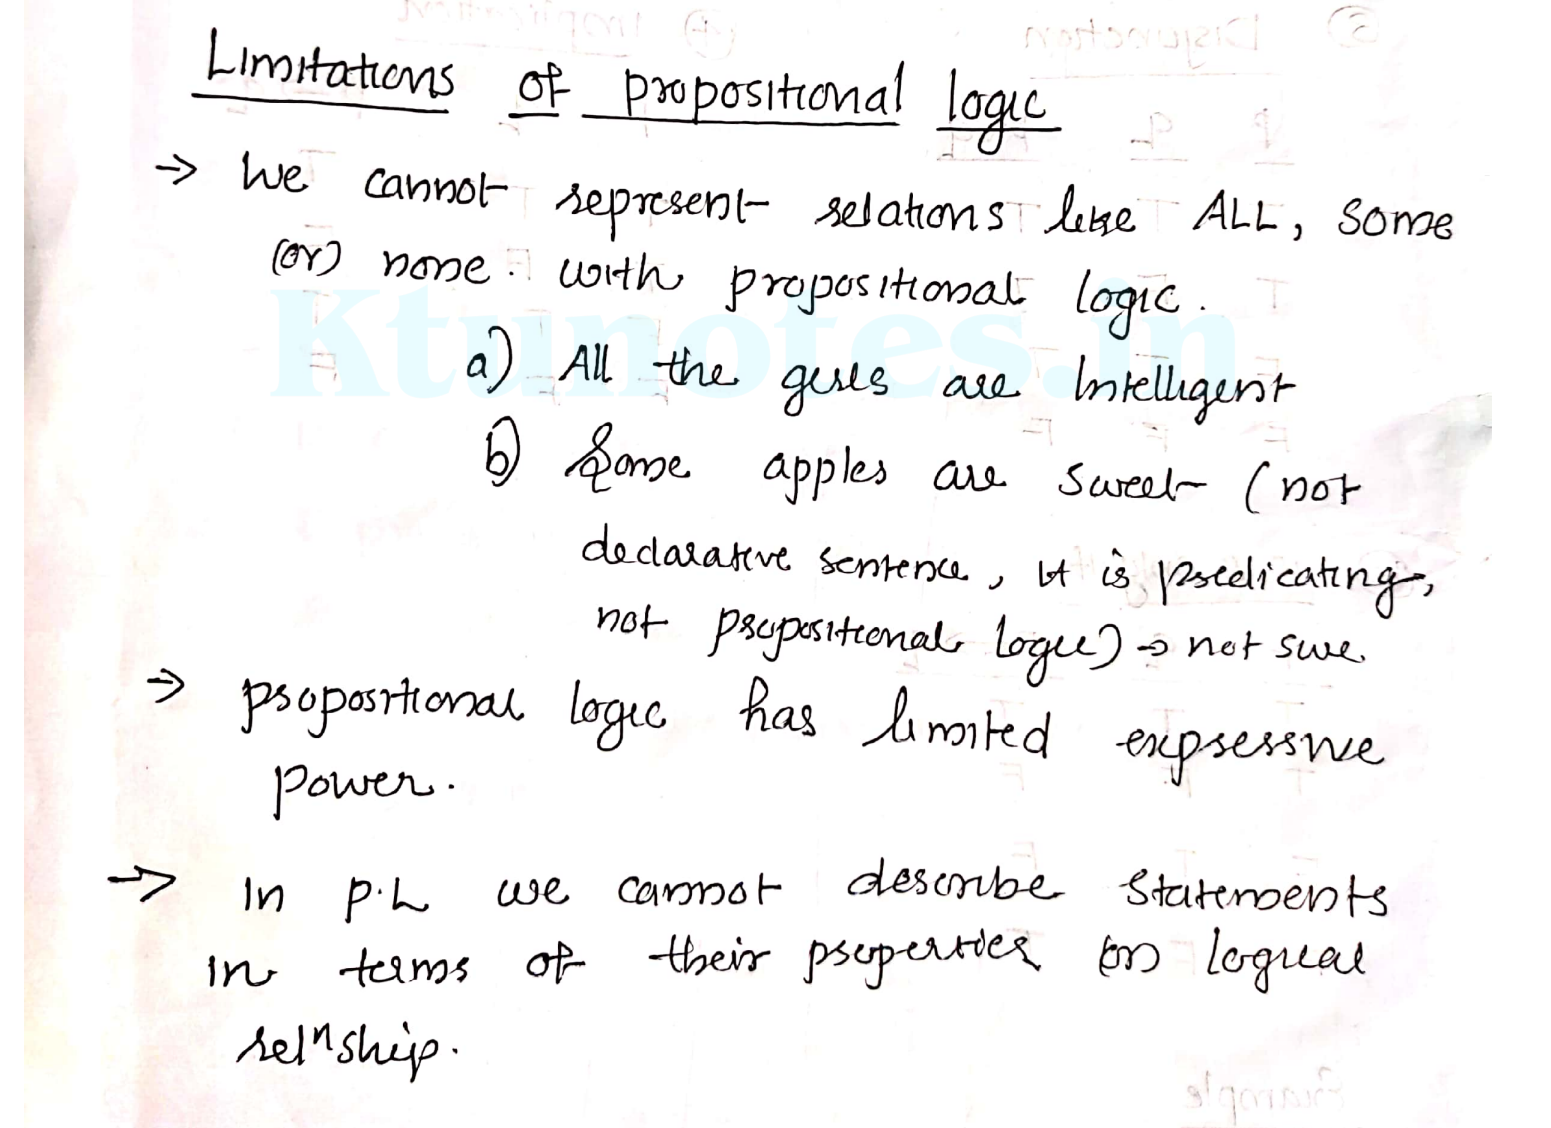 Limitations of propositional logic
→ We cannot represent relations like ALL, Some
(or) none. with propositional logic.
Ktunotes.in
a) All the girls are Intelligent
b) Some apples are sweet (not
declarative sentence, it is predicating,
not propositional logic) → not sure.
→ propositional logic has limited expressive
power.
→ In P.L we cannot describe statements
in terms of their properties or logical
relnship.
Example